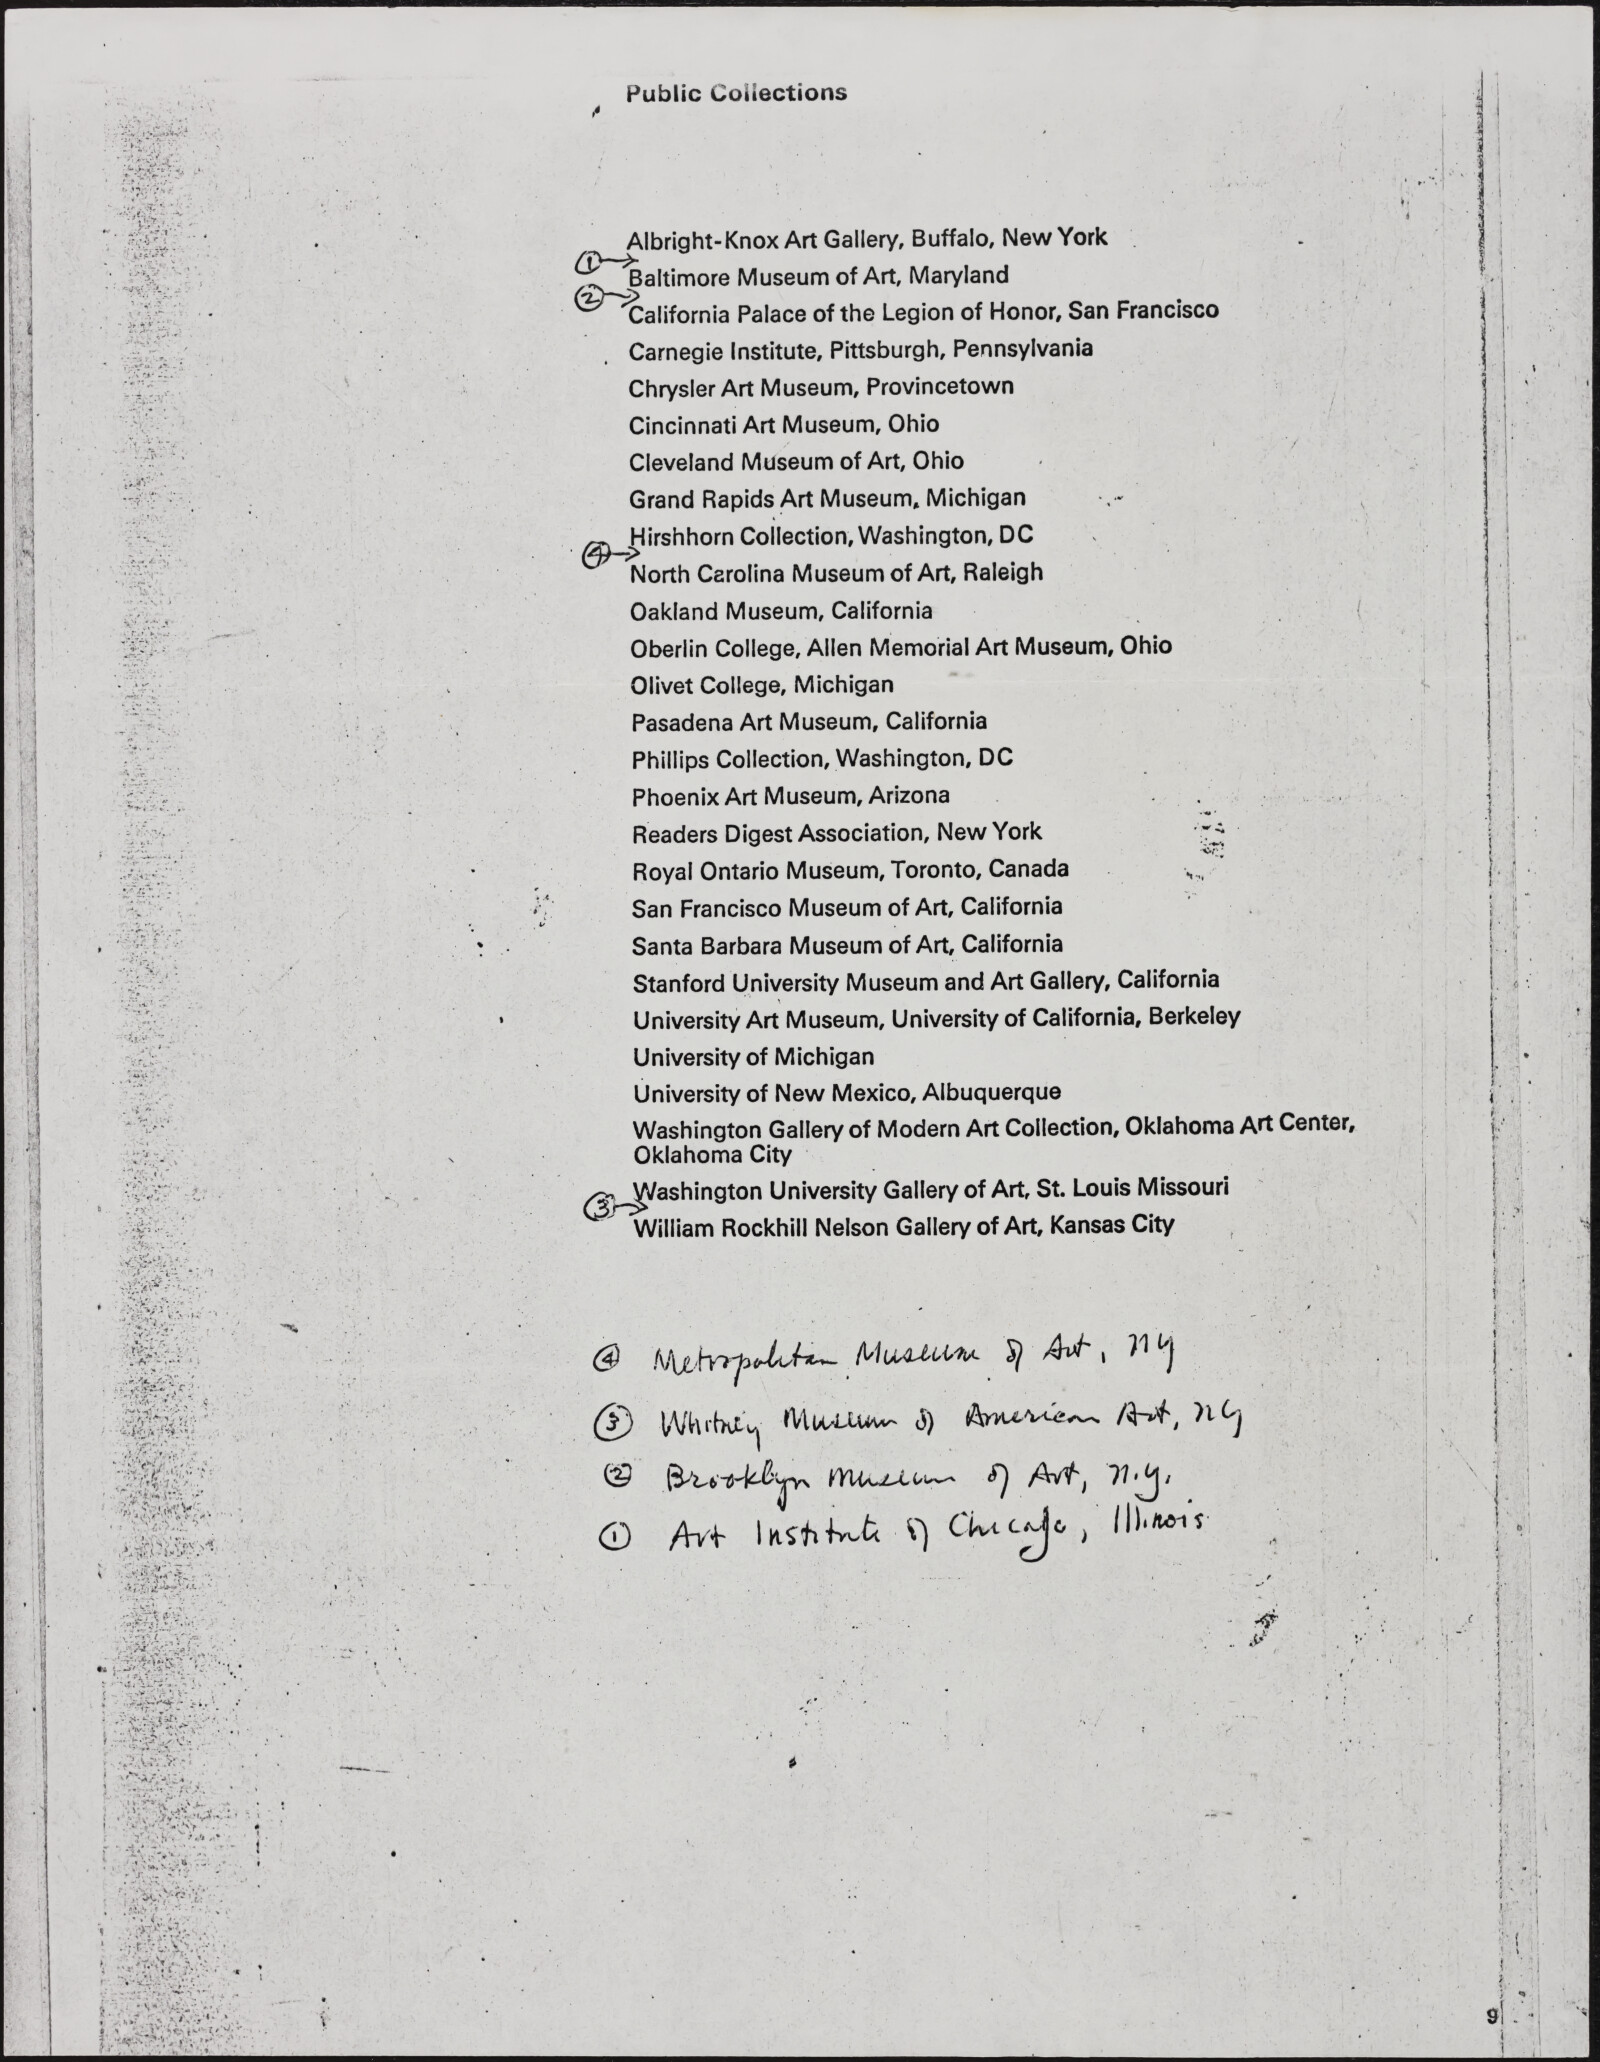 Public Collections
Albright-Knox Art Gallery, Buffalo, New York
① →
Baltimore Museum of Art, Maryland
② →
California Palace of the Legion of Honor, San Francisco
Carnegie Institute, Pittsburgh, Pennsylvania
Chrysler Art Museum, Provincetown
Cincinnati Art Museum, Ohio
Cleveland Museum of Art, Ohio
Grand Rapids Art Museum, Michigan
Hirshhorn Collection, Washington, DC
④ →
North Carolina Museum of Art, Raleigh
Oakland Museum, California
Oberlin College, Allen Memorial Art Museum, Ohio
Olivet College, Michigan
Pasadena Art Museum, California
Phillips Collection, Washington, DC
Phoenix Art Museum, Arizona
Readers Digest Association, New York
Royal Ontario Museum, Toronto, Canada
San Francisco Museum of Art, California
Santa Barbara Museum of Art, California
Stanford University Museum and Art Gallery, California
University Art Museum, University of California, Berkeley
University of Michigan
University of New Mexico, Albuquerque
Washington Gallery of Modern Art Collection, Oklahoma Art Center,
Oklahoma City
Washington University Gallery of Art, St. Louis Missouri
③ →
William Rockhill Nelson Gallery of Art, Kansas City
④ Metropolitan Museum of Art, NY
③ Whitney Museum of American Art, NY
② Brooklyn Museum of Art, N.Y.
① Art Institute of Chicago, Illinois
9